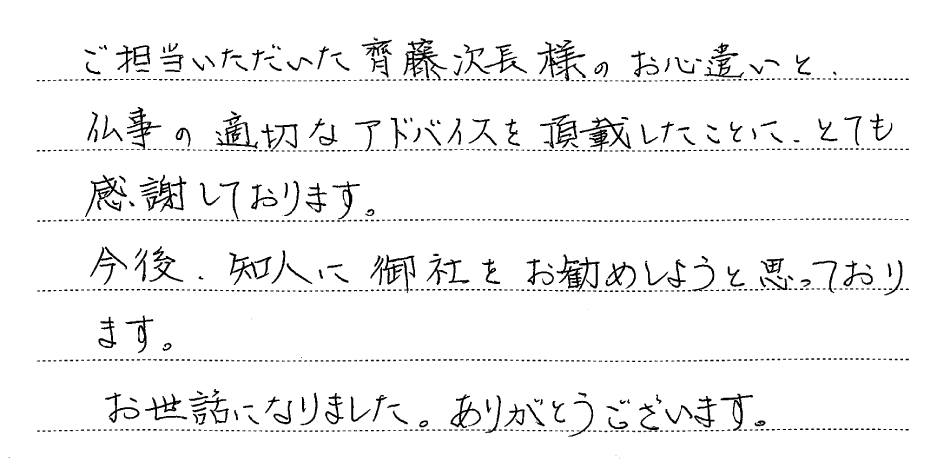 ご担当いただいた齊藤次長様のお心遣いと、
仏事の適切なアドバイスを頂載したことに、とても
感謝しております。
今後、知人に御社をお勧めしようと思っており
ます。
お世話になりました。ありがとうございます。